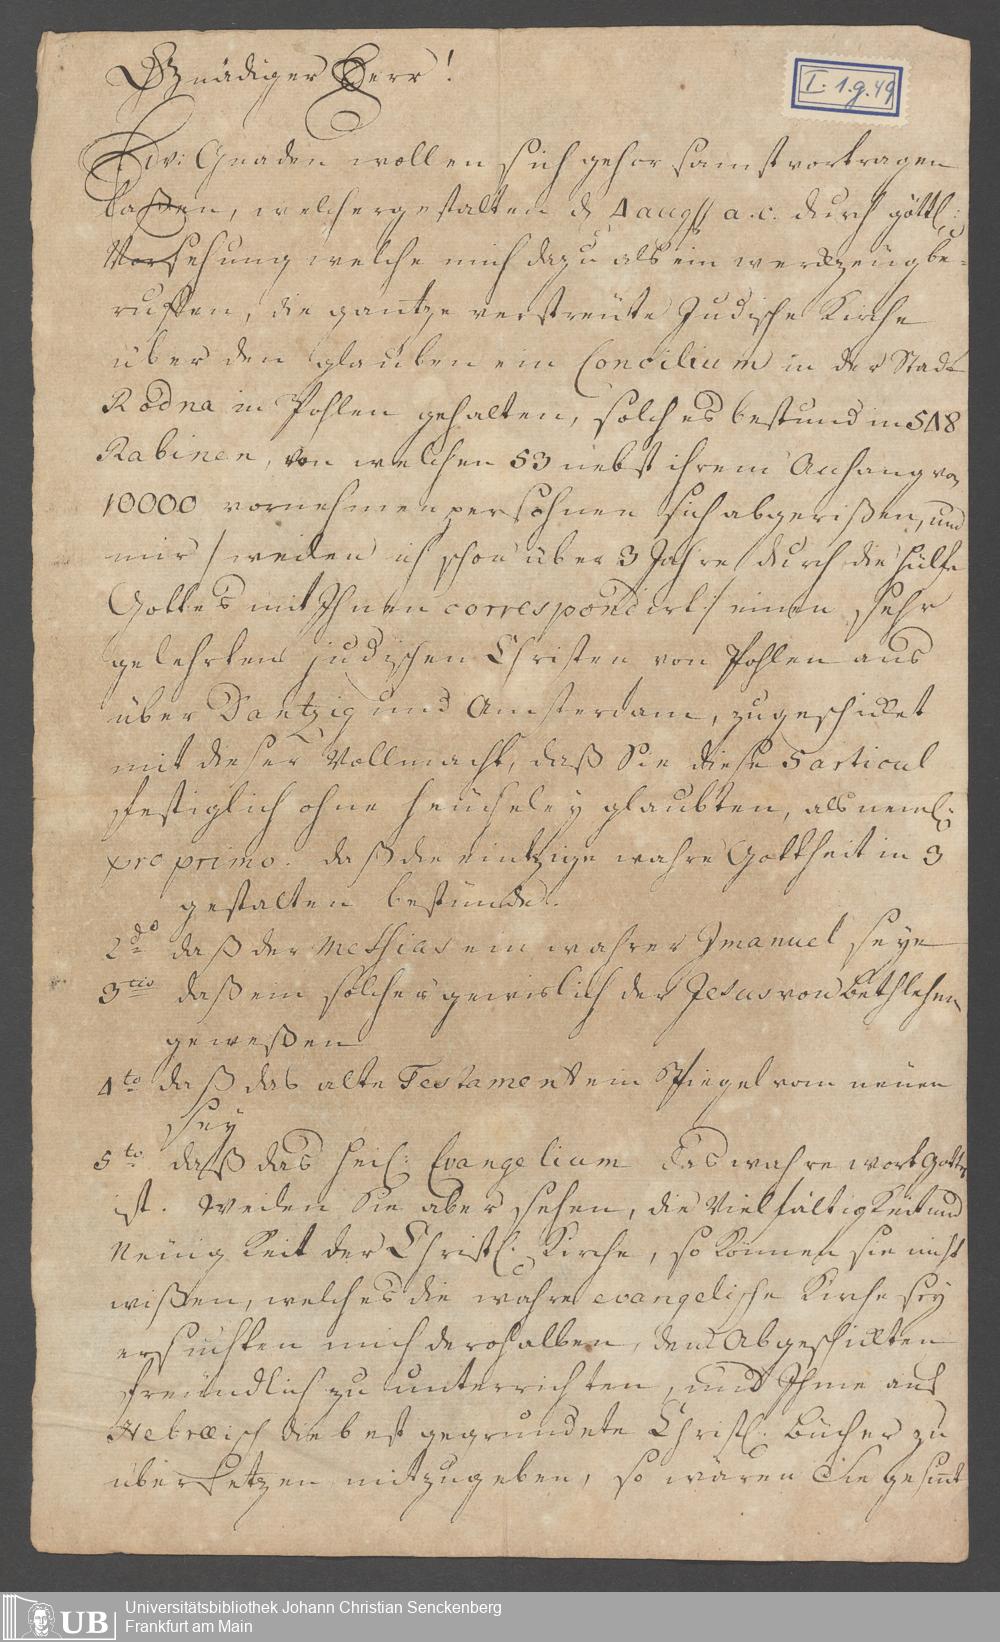 Gnädiger Herr!
I. 1. g. 49
Ew: Gnaden wollen sich gehorsamst vortragen
laßen, welchergestalten d 4 augst a. c. durch göttl:
Vorsehung welche mich dazu als ein werckzeüg be-
ruffen, die gantze verstreüte Judische Kirche
über den glauben ein Concilium in der Stadt
Rodna in Pohlen gehalten, solches bestund in 548
Rabinen, von welchen 53 nebst ihrem Anhang von
10000 vornehmen persohnen sich abgerißen, und
mir /: weilen ich schon über 3 Jahre durch die hülfe
Gottes mit Ihnen correspondirt :/ einen sehr
gelehrten judischen Christen von Pohlen aus
über Dantzig und Amsterdam, zugeschicket
mit dieser Vollmacht, daß Sie diese 5 articul
festiglich ohne heücheley glaubten, als neml:
pro primo. daß die eintzige wahre Gottheit in 3
gestalten bestünde.
2do daß der Messias ein wahrer Imanuel seye
3tio daß ein solcher gewislich der Jesus von Bethlehem
geweßen
4to daß das alte Testament ein Spiegel vom neüen
sey
5to daß das heil: Evangelium das wahre wort Gottes
ist. Weilen Sie aber sehen, die Vielfältigkeit und
Neüigkeit der Christl: Kirche, so können sie nicht
wißen, welches die wahre evangelische Kirche sey
ersuchten mich derohalben, dem Abgeschickten
freündlich zu unterrichten, und Ihme auf
Hebræisch die best gegrundete Christl: Bücher zu
übersetzen mitzugeben, so wären Sie gesint
UB
Universitätsbibliothek Johann Christian Senckenberg
Frankfurt am Main